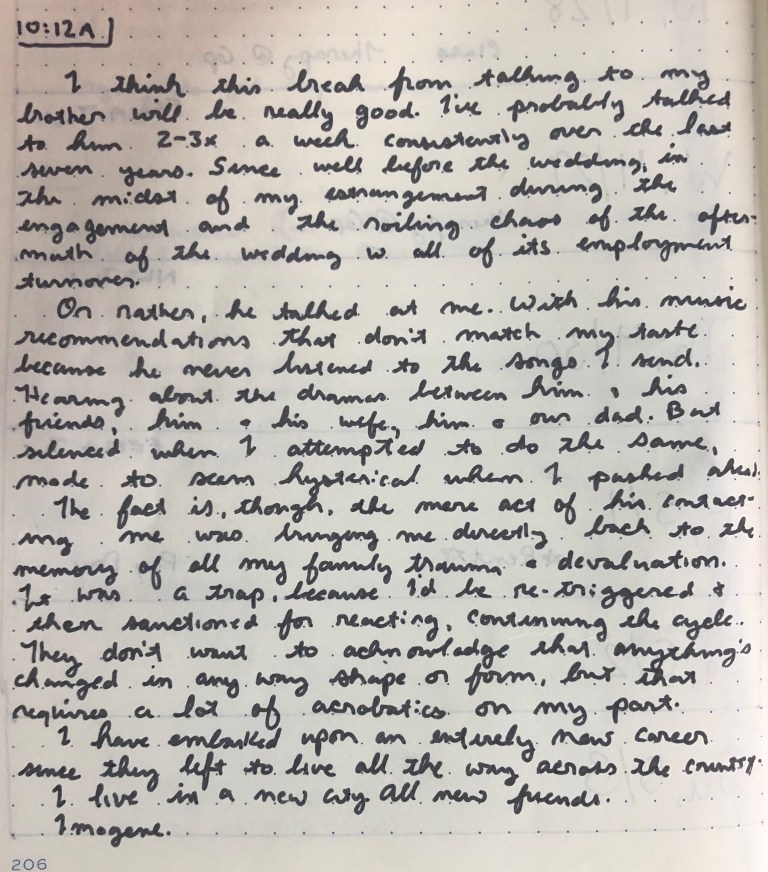 10:12A
I think this break from talking to my
brother will be really good. I've probably talked
to him 2-3x a week consistently over the last
seven years. Since well before the wedding, in
the midst of my estrangement during the
engagement and the roiling chaos of the after-
math of the wedding w all of its employment
turnover.
Or rather, he talked at me. With his music
recommendations that don't match my taste
because he never listened to the songs I send.
Hearing about the dramas between him & his
friends, him & his wife, him & our dad. But
silenced when I attempted to do the same,
made to seem hysterical when I pushed ahead.
The fact is, though, the mere act of his contact-
ing me was bringing me directly back to the
memory of all my family trauma & devaluation.
It was a trap, because I'd be re-triggered &
then sanctioned for reacting, continuing the cycle.
They don't want to acknowledge that anything's
changed in any way shape or form, but that
requires a lot of acrobatics on my part.
I have embarked upon an entirely new career
since they left to live all the way across the country.
I live in a new city all new friends.
Imogene.
206